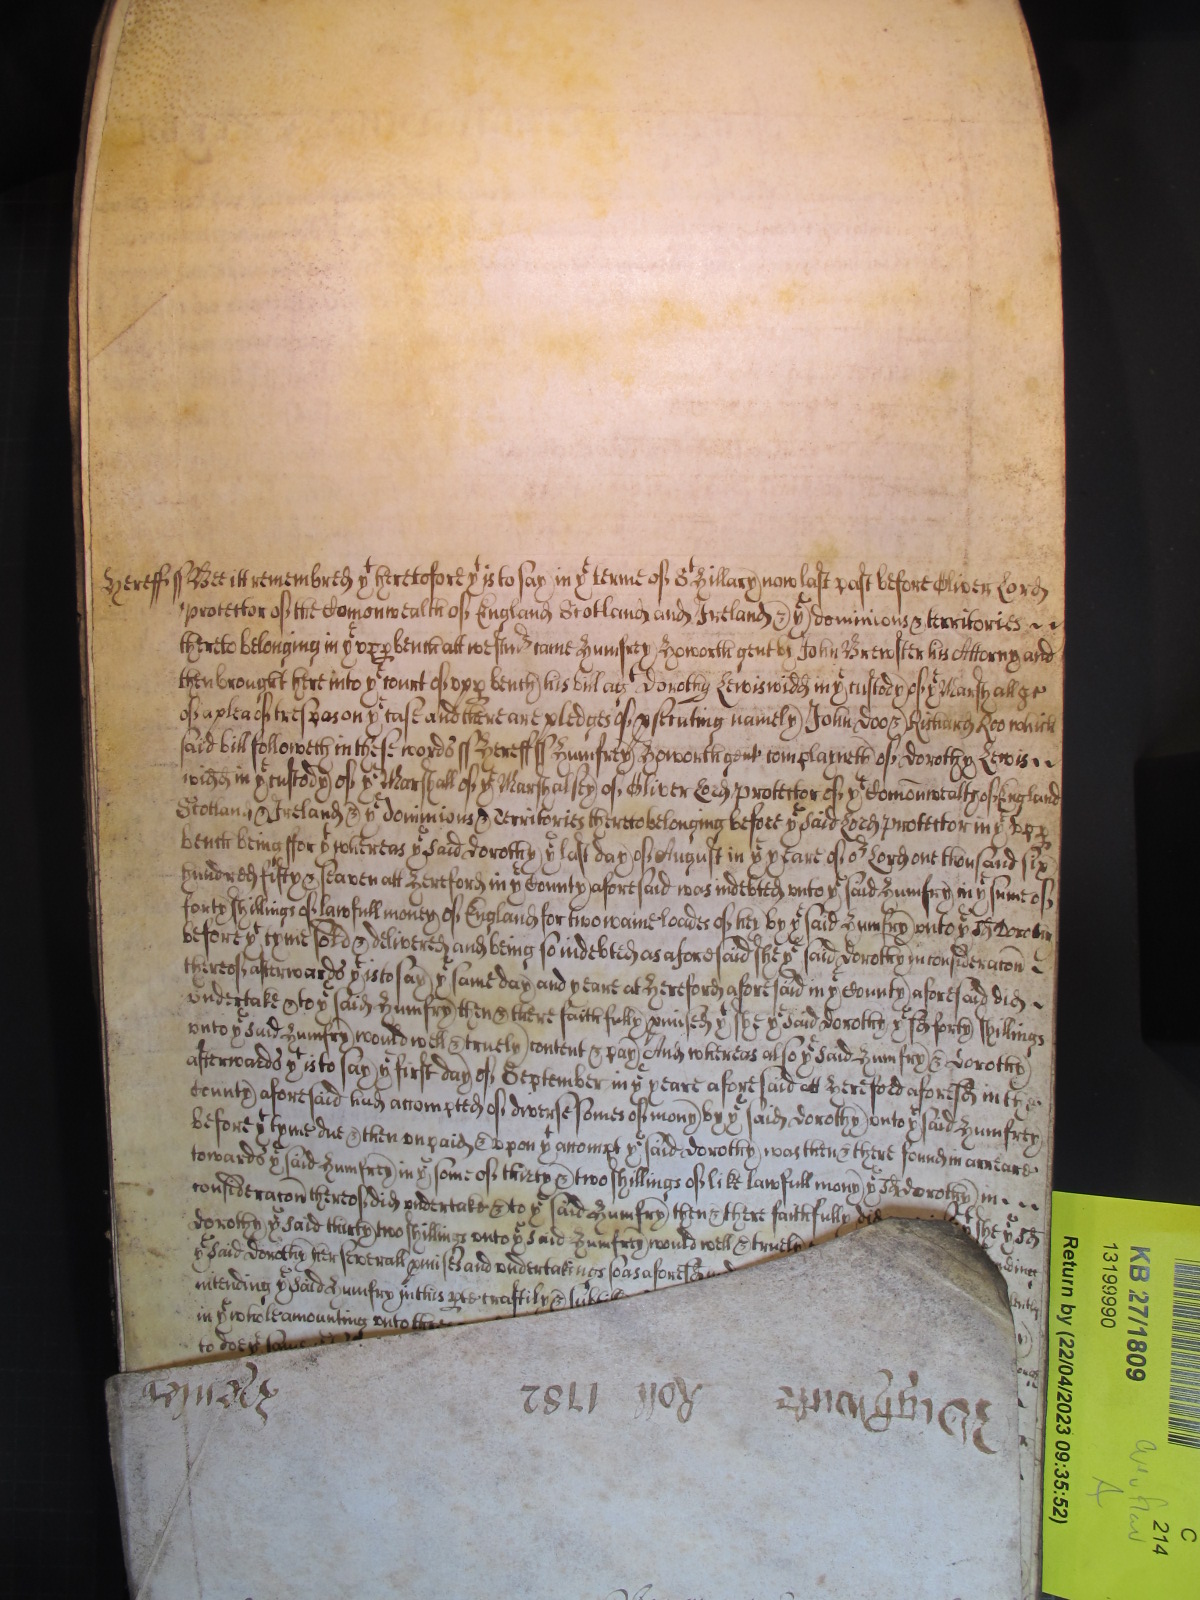 Hereff ss Bee itt remembred yt heretofore yt is to say in ye terme of St Hillary now last past before Oliver Lord
protector of the Comonwealth of England Scotland and Ireland & ye dominions & territories
thereto belonging in ye upp bench att westmr came Humfrey Howorth gent by John Brewster his Attorny and
then brought here into ye court of upp bench his bill agt Dorothy Lewis widd in ye custody of ye Marshall &c
of a plea of trespas on ye case And there are pledges of psecuting namely John Doo & Richard Roo which
said bill followeth in these words ss Hereff ss Humfrey Howorth gent complayneth of Dorothy Lewis
widd in ye custody of ye Marshall of ye Marshalsey of Oliver Lord protector of ye Comonwealth of England
Scotland & Ireland & ye dominions & Territories thereto belonging before ye said Lord protector in ye upp
bench being ffor yt whereas ye said Dorothy ye last day of August in ye yeare of or Lord one thousand six
hundred fifty & seaven att Hereford in ye County aforesaid was indebted unto ye said Humfry in ye sume of
forty shillings of lawfull money of England for two waine loades of hey by ye said Humfry unto ye sd Dorothy
before yt tyme sold & delivered and being so indebted as aforesaid she ye said Dorothy in consideracon
thereof afterwards yt is to say ye same day and yeare at Hereford aforesaid in ye County aforesaid did
undertake & to ye said Humfry then & there faithfully pmised yt she ye said Dorothy ye sd forty shillings
unto ye said Humfry would well & truely content & pay And whereas also ye said Humfry & Dorothy
afterwards yt is to say ye first day of September in ye yeare aforesaid att Hereford aforesd in the
County aforesaid had accompted of diverse somes of mony by ye said Dorothy unto ye said Humfrey
before yt tyme due & then unpaid & upon yt accompt ye said Dorothy was then & there found in arreare
towards ye said Humfrey in ye some of thirty & two shillings of like lawfull mony ye sd Dorothy in
consideracon thereof did undertake & to ye said Humfry then & there faithfully did she ye sd
Dorothy ye said thirty two shillings unto ye said Humfrey would well & truely
ye said Dorothy her severall pmises and undertakings so as aforesd
intending ye said Humfry in this pte craftily &
in ye whole amounting unto
to doe ye same
Hymer Roll 1782 Wightwicke
KB 27/1809
13199990
Return by (22/04/2023 09:35:52)
C
214
A